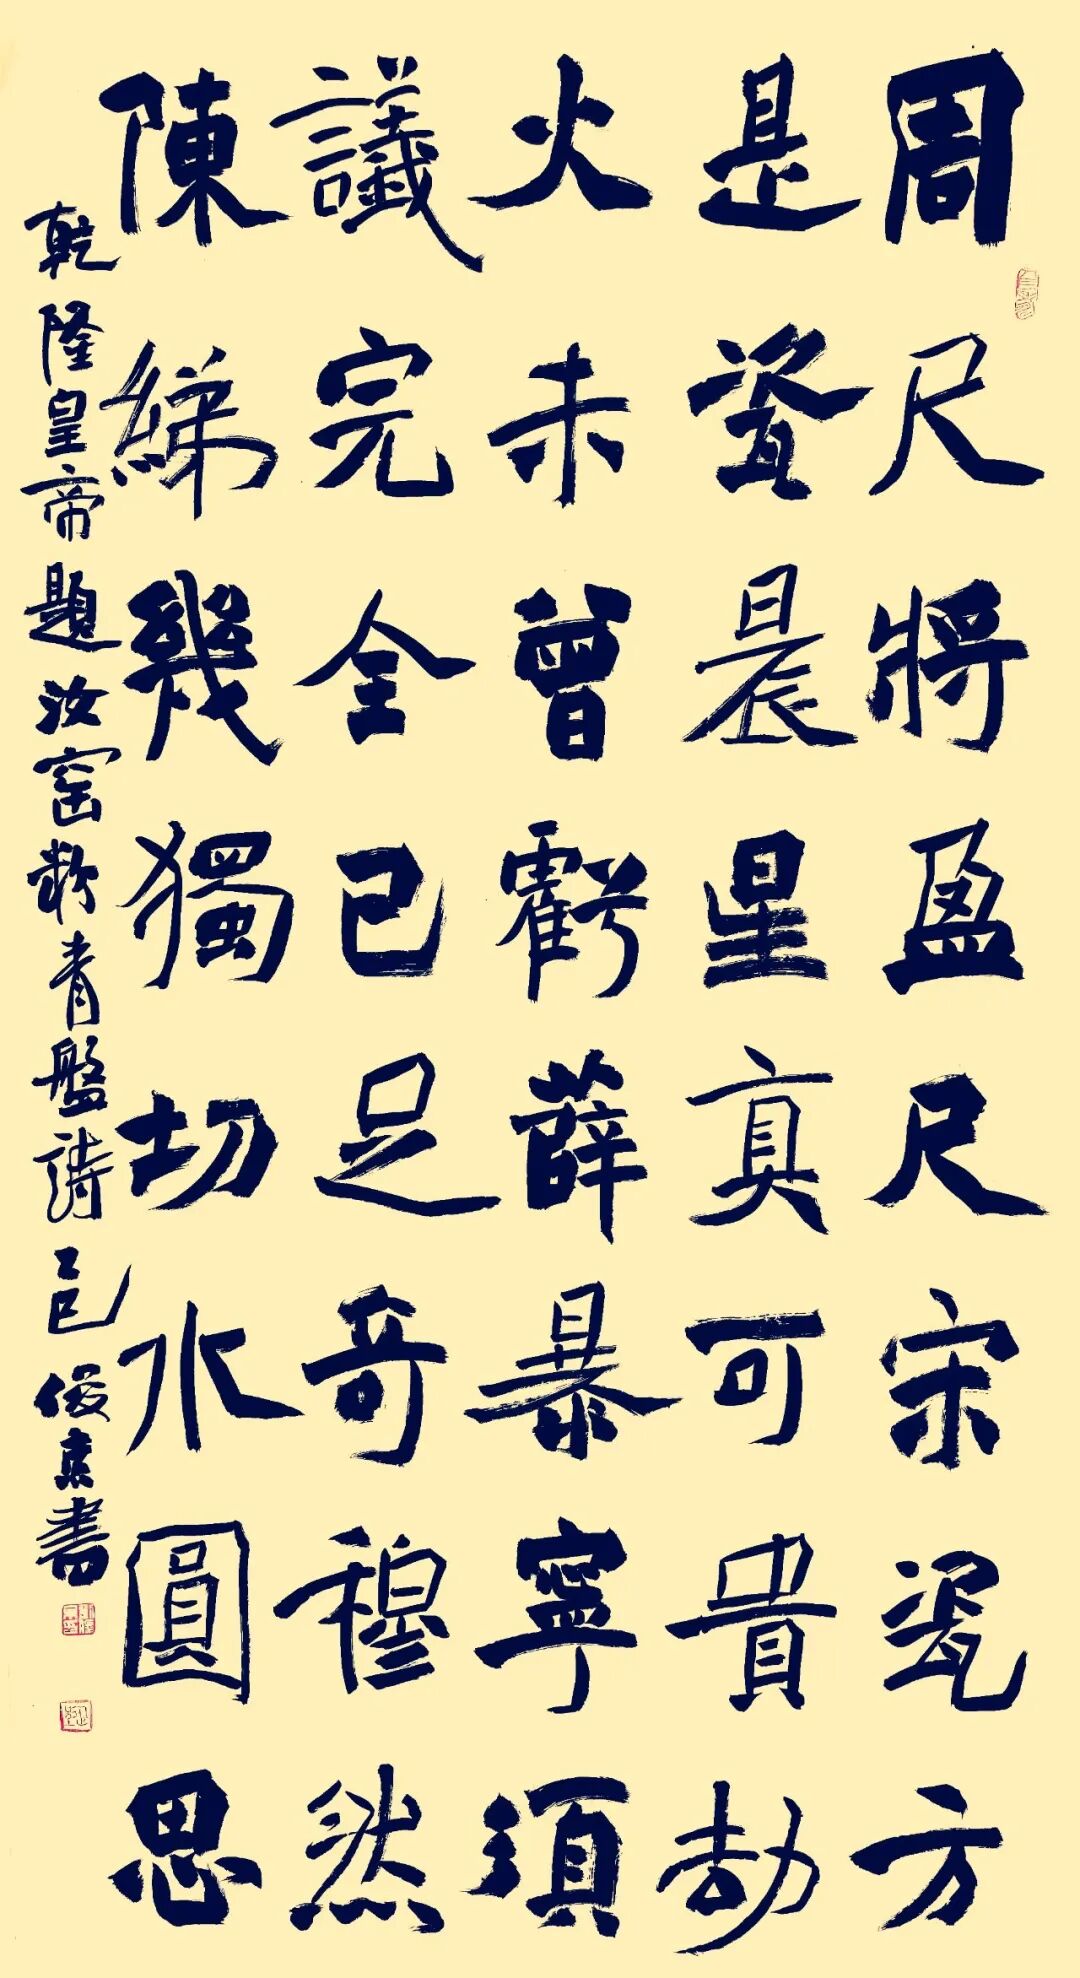 周尺將盈尺宋瓷方
是瓷晨星真可貴劫
火未曾虧薛暴寧須
議完全已足奇穆然
陳綈幾獨切水圓思
乾隆皇帝題汝窑粉青盤詩乙巳俊京書